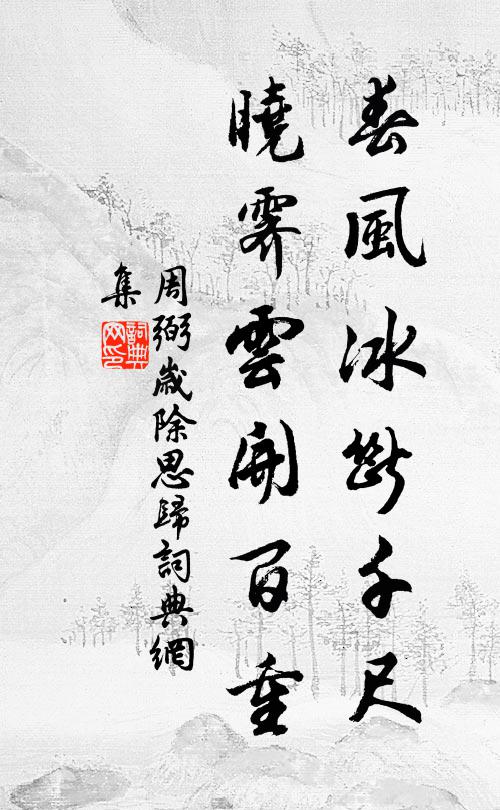 春風冰斷千尺
曉霽雲開百重
周弼歲除思歸詞典網
集
詞典
网印